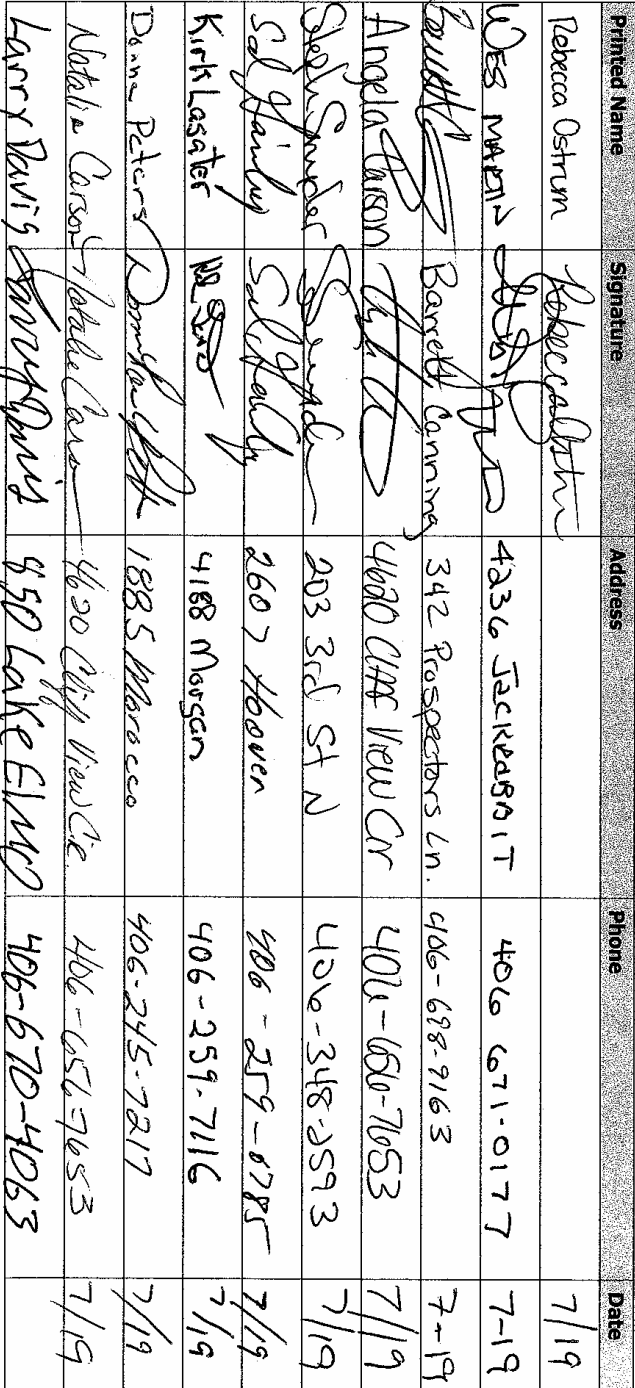 Printed Name Signature Address Phone Date
Rebecca Ostrum 7/19
WES MARTIN 4236 JACKRABBIT 406 671-0177 7-19
Barrett Canning 342 Prospectors Ln. 406-698-9163 7-19
Angela Carson 4620 Cliff View Cr 406-656-7653 7/19
203 3rd St N 406-348-2593 7/19
2607 Hoover 406-259-6785 7/19
Kirk Lasater 4188 Morgan 406-259-7116 7/19
Donna Peters 1885 Morocco 406-245-7217 7/19
Natalie Carson Natalie Carson 4620 Cliff View Cir. 406-656-7653 7/19
Larry Davis Larry Davis 850 Lake Elmo 406-670-4063